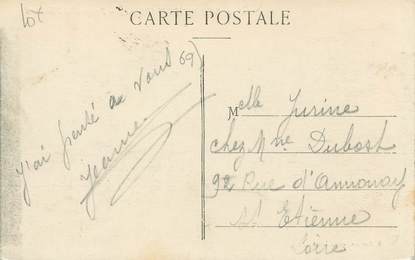 lot
CARTE POSTALE
69)
J'ai pensé a vous
Jeanne
Melle Jurine
chez Mme Dubost
98 Rue d'Annonay
St Etienne
Loire